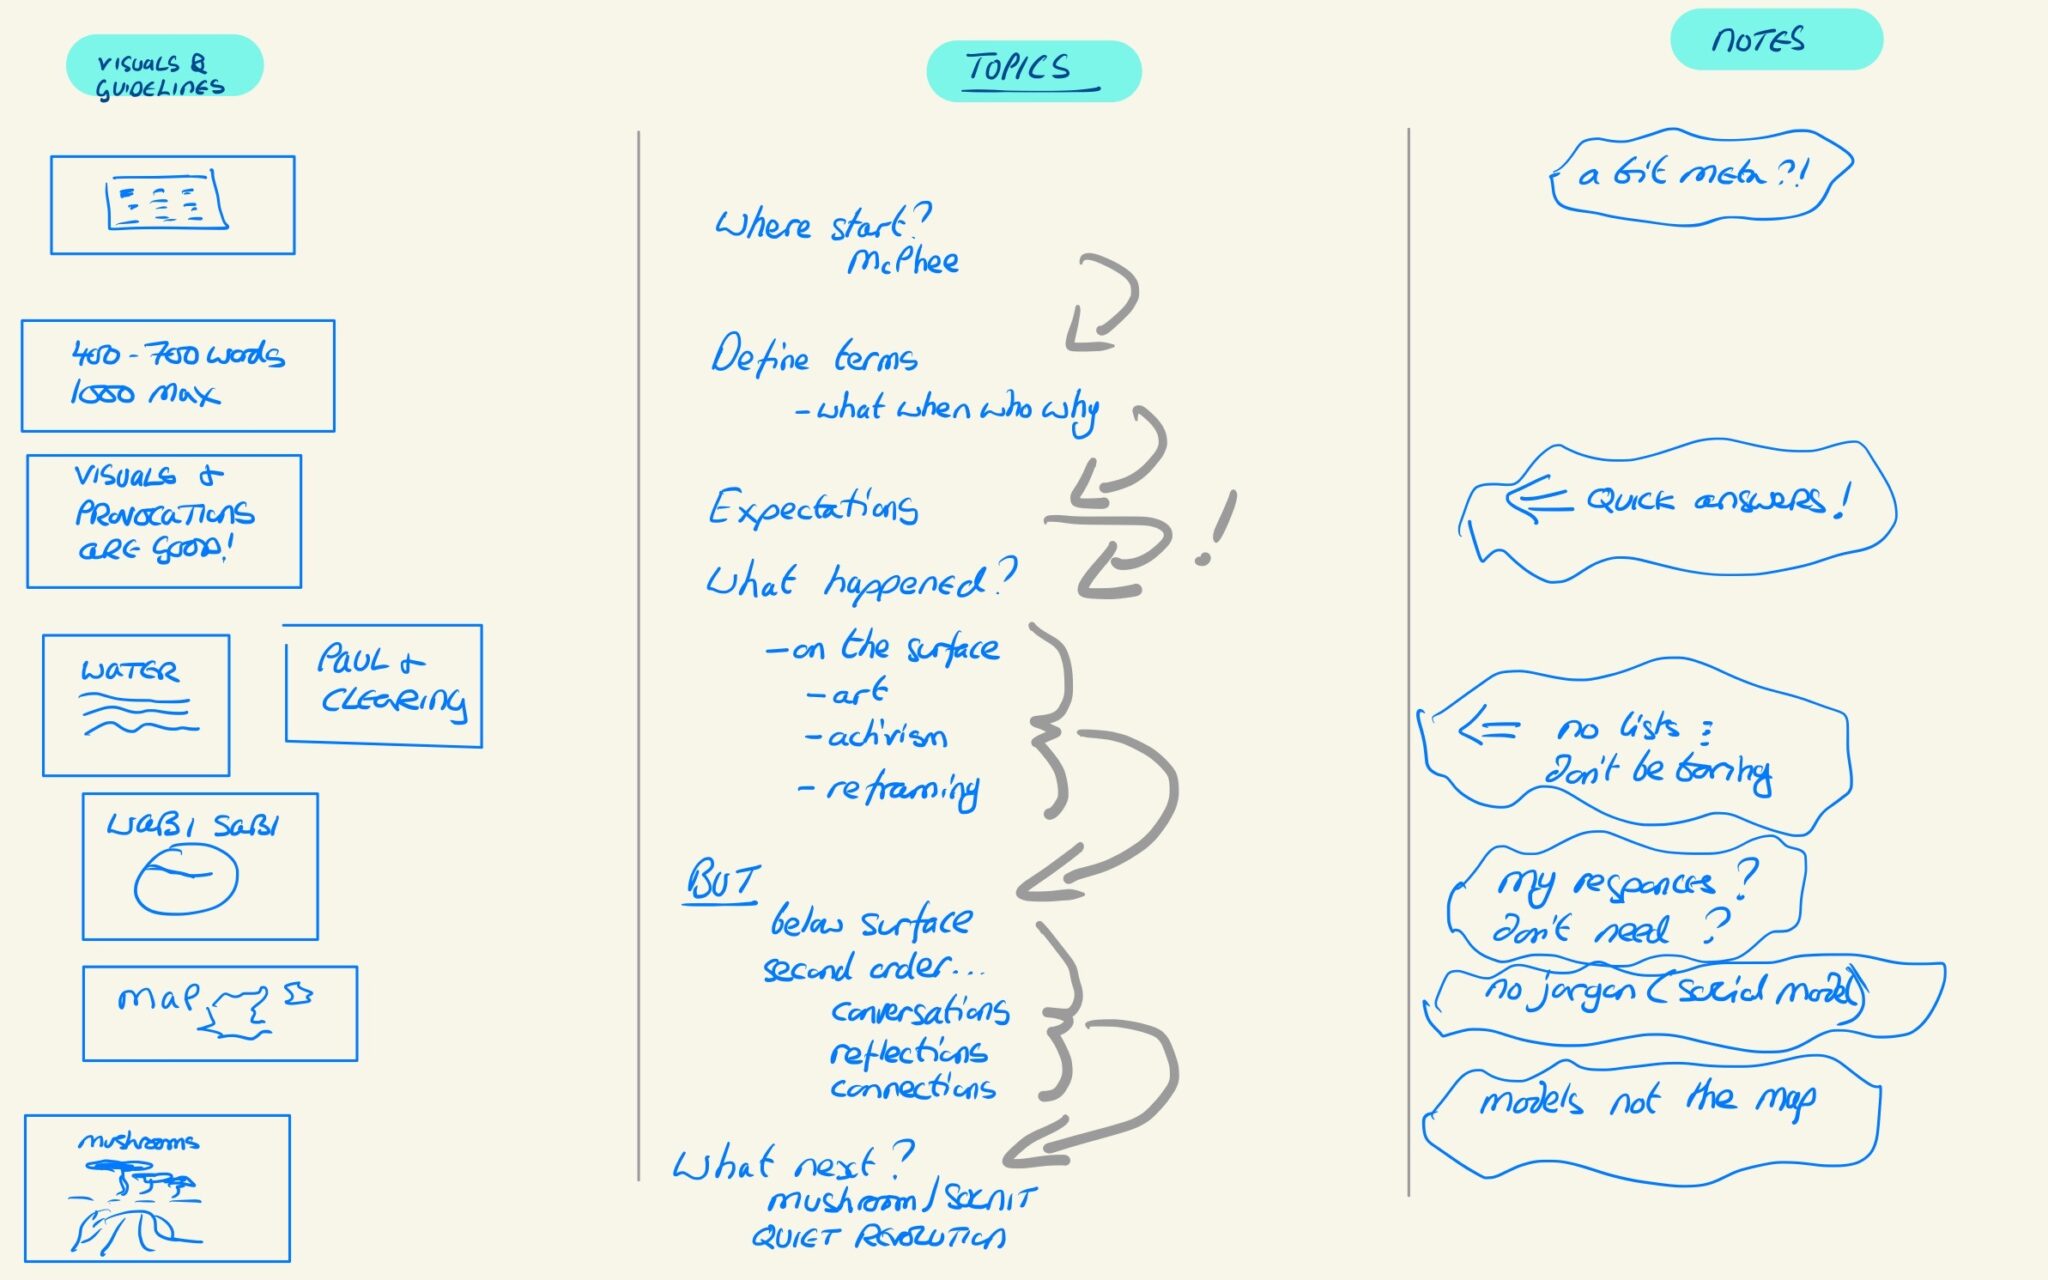 VISUALS &
GUIDELINES
400 - 700 words
1000 max
VISUALS +
PROVOCATIONS
ARE GOOD!
WATER
PAUL +
CLEARING
WABI SABI
MAP
mushrooms
TOPICS
Where start?
McPhee
Define terms
- what when who why
Expectations
!
What happened?
- on the surface
- art
- activism
- reframing
BUT
below surface
second order...
conversations
reflections
connections
What next?
mushroom /
QUIET REVOLUTION
NOTES
a bit meta?!
QUICK answers!
no lists :
don't be boring
my responces?
don't need?
no jargon (social model)
models not the map